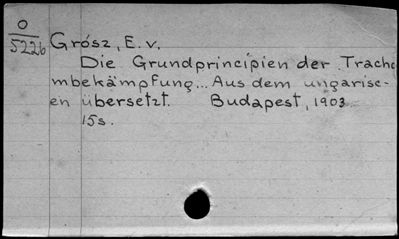 O
5226
Grósz, E. v.
Die Grundprincipien der Tracho
mbekämpfung... Aus dem ungarisc-
en übersetzt. Budapest, 1903
15s.